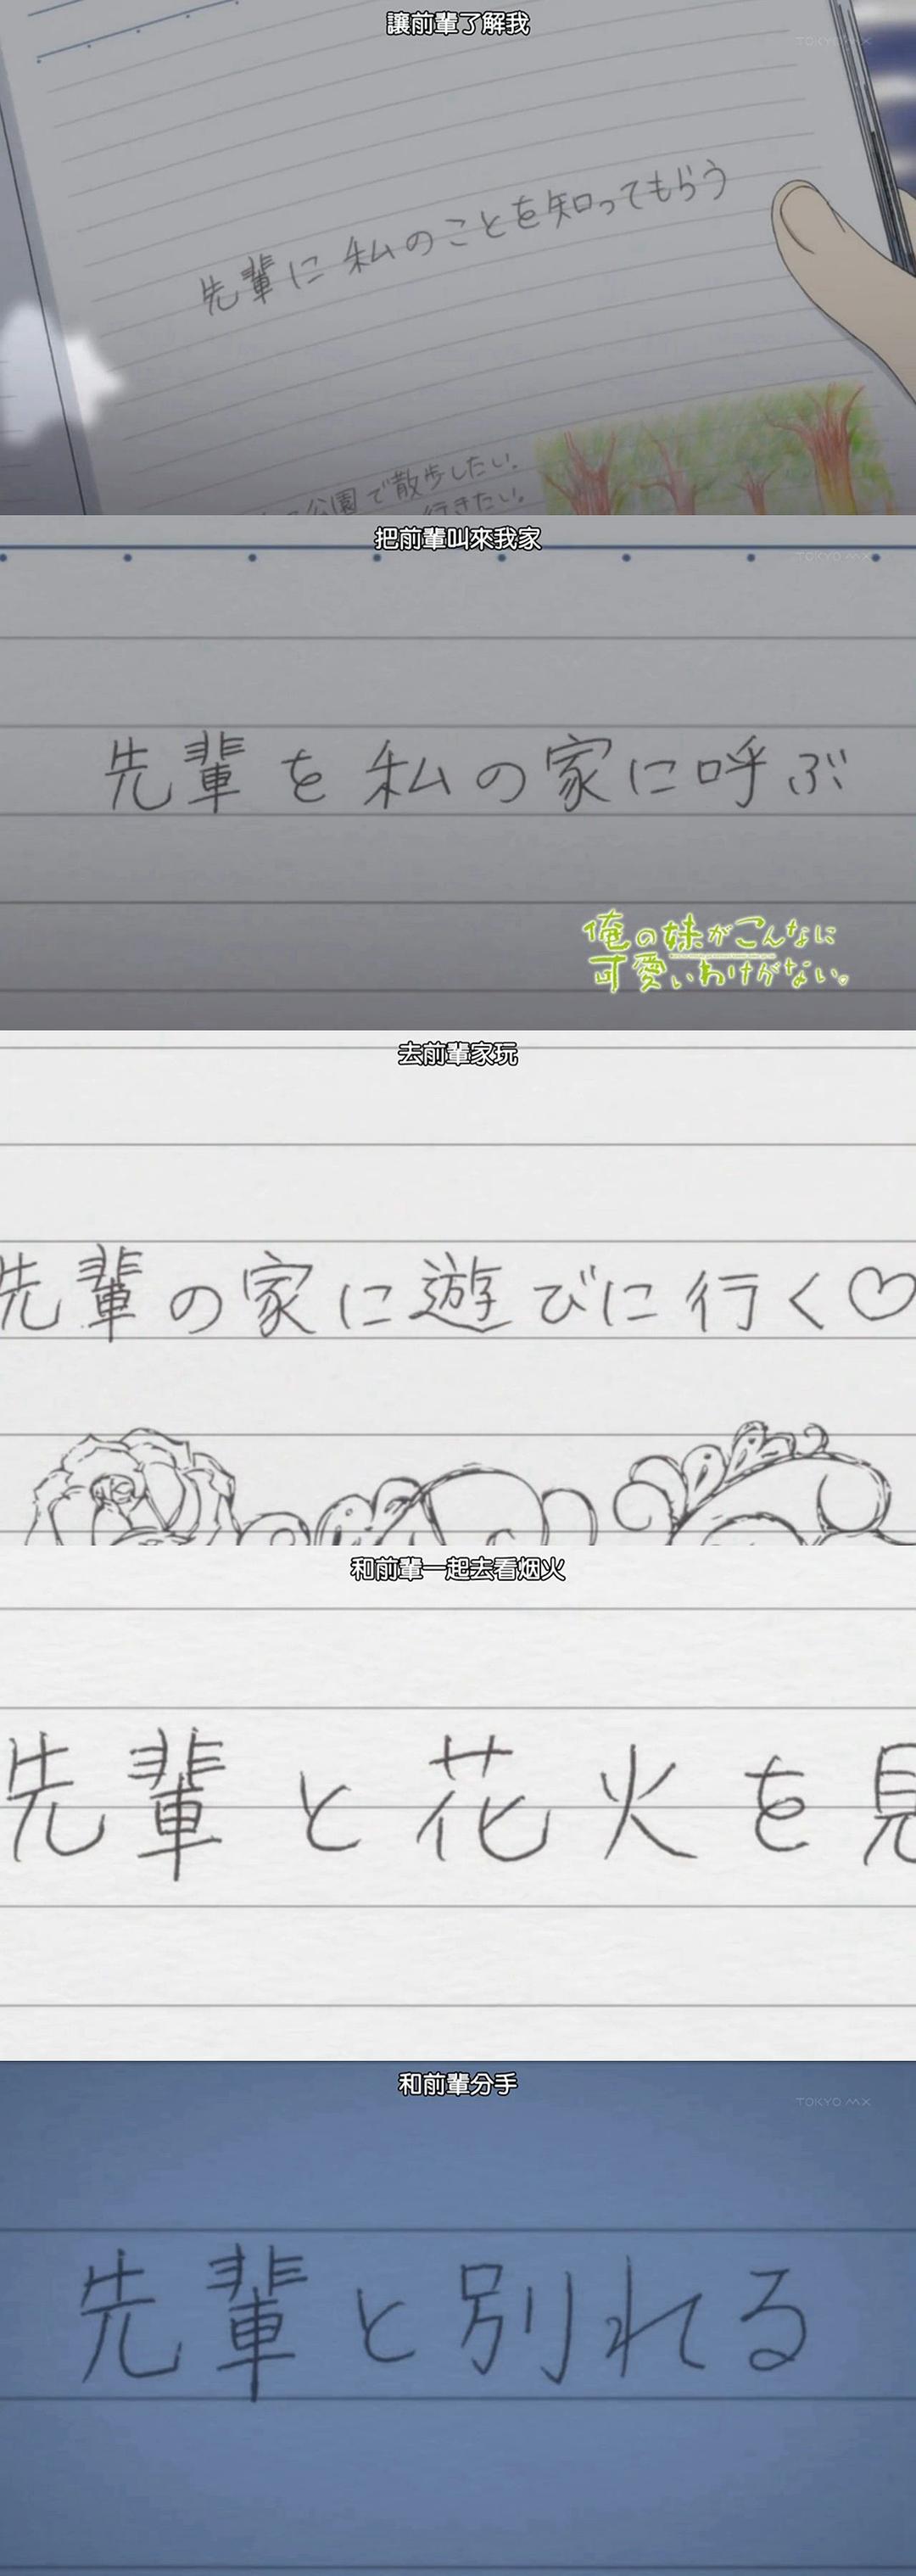 讓前輩了解我
TOKYO MX
先輩に私のことを知ってもらう
公園で散歩したい。
行きたい。
把前輩叫來我家
TOKYO MX
先輩を私の家に呼ぶ
俺の妹がこんなに
可愛いわけがない。
去前輩家玩
先輩の家に遊びに行く♡
和前輩一起去看烟火
先輩と花火を見
和前輩分手
TOKYO MX
先輩と別れる